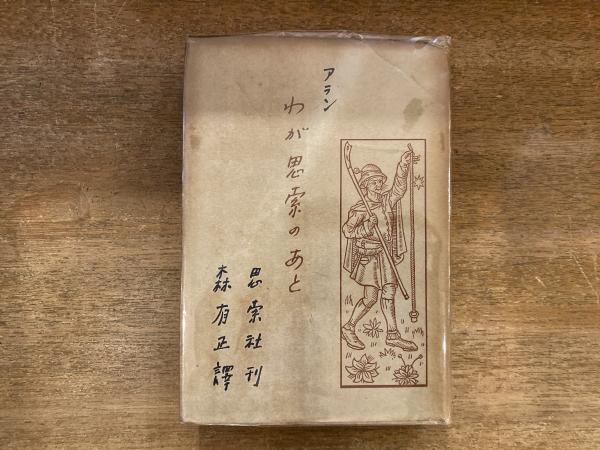 アラン
わが思索のあと
思索社刊
森有正譯